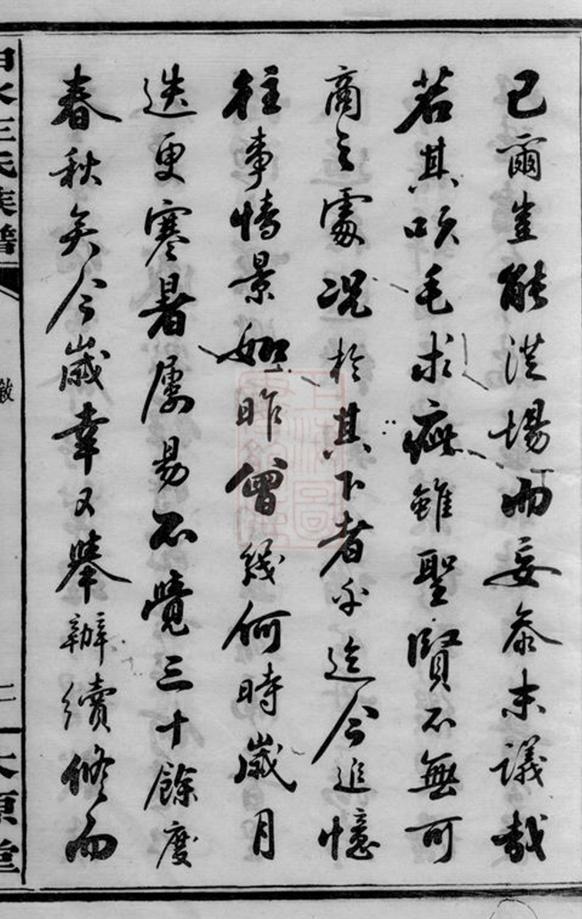 已爾豈能濫場而妄參末議哉
若其吹毛求疵雖聖賢不無可
商之處況於其下者乎迄今追憶
往事情景如昨曾幾何時歲月
迭更寒暑屢易不覺三十餘度
春秋矣今歲幸又舉辦續修而
白水王氏族譜
敘
二
太原堂